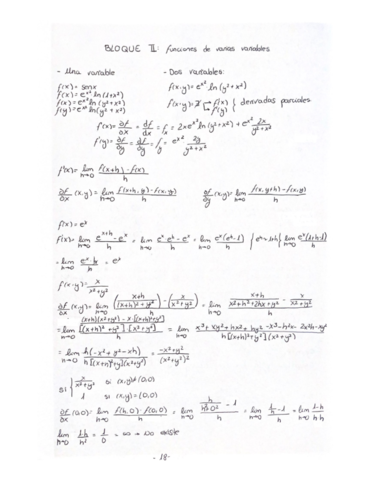 BLOQUE II: funciones de varias variables
- Una variable
- Dos variables:
f(x)= senx
f(x)= e^x² ln(1+x²)
f(x)= e^x² ln(y²+x²)
f(y)= e^x² ln(y²+x²)
f(x,y)= e^x² ln(y²+x²)
f(x,y)= f'(x) f'(y) } derivadas parciales
f'(x)= ∂f/∂x = df/dx = f'x = 2xe^x² ln(y²+x²) + e^x² 2x/(y²+x²)
f'(y)= ∂f/∂y = df/dy = f'y = e^x² 2y/(y²+x²)
f'(x)= lim h→0 (f(x+h)-f(x))/h
∂f/∂x (x,y)= lim h→0 (f(x+h,y)-f(x,y))/h
∂f/∂y (x,y)= lim h→0 (f(x,y+h)-f(x,y))/h
f(x)= e^x
f'(x)= lim h→0 (e^(x+h) - e^x)/h = lim h→0 (e^x e^h - e^x)/h = lim h→0 (e^x(e^h-1))/h
= lim h→0 (e^x·h)/h = e^x
f(x,y)= x/(x²+y²)
∂f/∂x (x,y)= lim h→0 ((x+h)/((x+h)²+y²) - x/(x²+y²))/h = lim h→0 ((x+h)/(x²+h²+2hx+y²) - x/(x²+y²))/h
= lim h→0 ((x+h)(x²+y²)-x·[(x+h)²+y²])/([(x+h)²+y²][x²+y²])/h = lim h→0 (x³+xy²+hx²+hy²-x³-h²x-2x²h-xy²)/(h[(x+h)²+y²](x²+y²))
= lim h→0 h(-x²+y²-xh)/(h[(x+h)²+y²](x²+y²)) = (-x²+y²)/(x²+y²)²
si { x/(x²+y²) si (x,y)≠(0,0)
1 si (x,y)=(0,0)
∂f/∂x (0,0)= lim h→0 (f(h,0)-f(0,0))/h = lim h→0 (h/(h²+0²) - 1)/h = lim h→0 (1/h - 1)/h = lim h→0
lim h→0 (1-h)/h² = 1/0 = ∞ → No existe
- 18 -